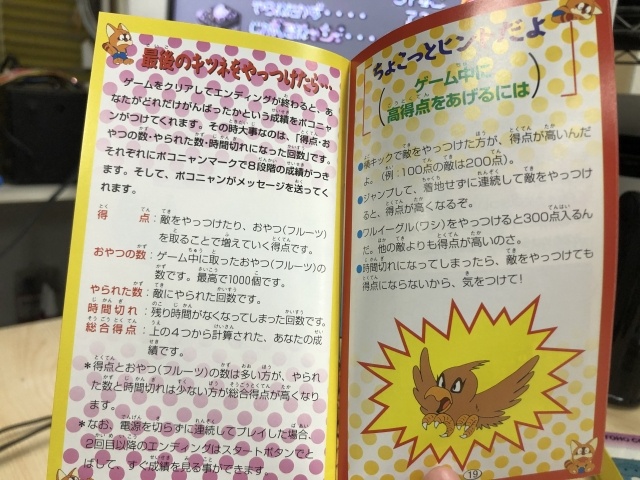 最後のキツネをやっつけたら…
ゲームをクリアしてエンディングが終わると、あ
なたがどれだけがんばったかという成績をポコニャ
ンがつけてくれます。その時大事なのは、「得点・お
やつの数・やられた数・時間切れになった回数」です。
それぞれにポコニャンマークで8段階の成績がつき
ます。そして、ポコニャンがメッセージを送ってく
れます。
得点:敵をやっつけたり、おやつ(フルーツ)
を取ることで増えていく得点です。
おやつの数:ゲーム中に取ったおやつ(フルーツ)の
数です。最高で1000個です。
やられた数:敵にやられた回数です。
時間切れ:残り時間がなくなってしまった回数です。
総合得点:上の4つから計算された、あなたの成
績です。
*得点とおやつ(フルーツ)の数は多い方が、やられ
た数と時間切れは少ない方が総合得点が高くなり
ます。
*なお、電源を切らずに連続してプレイした場合、
2回目以降のエンディングはスタートボタンでと
ばして、すぐ成績を見る事ができます。
ちょこっとヒントだよ
ゲーム中に
高得点をあげるには
●横キックで敵をやっつけた方が、得点が高いんだ
よ。(例:100点の敵は200点)。
●ジャンプして、着地せずに連続して敵をやっつけ
ると、得点が高くなるぞ。
●フルイーグル(ワシ)をやっつけると300点入るん
だ。他の敵よりも得点が高いのさ。
●時間切れになってしまったら、敵をやっつけても
得点にならないから、気をつけて!
19